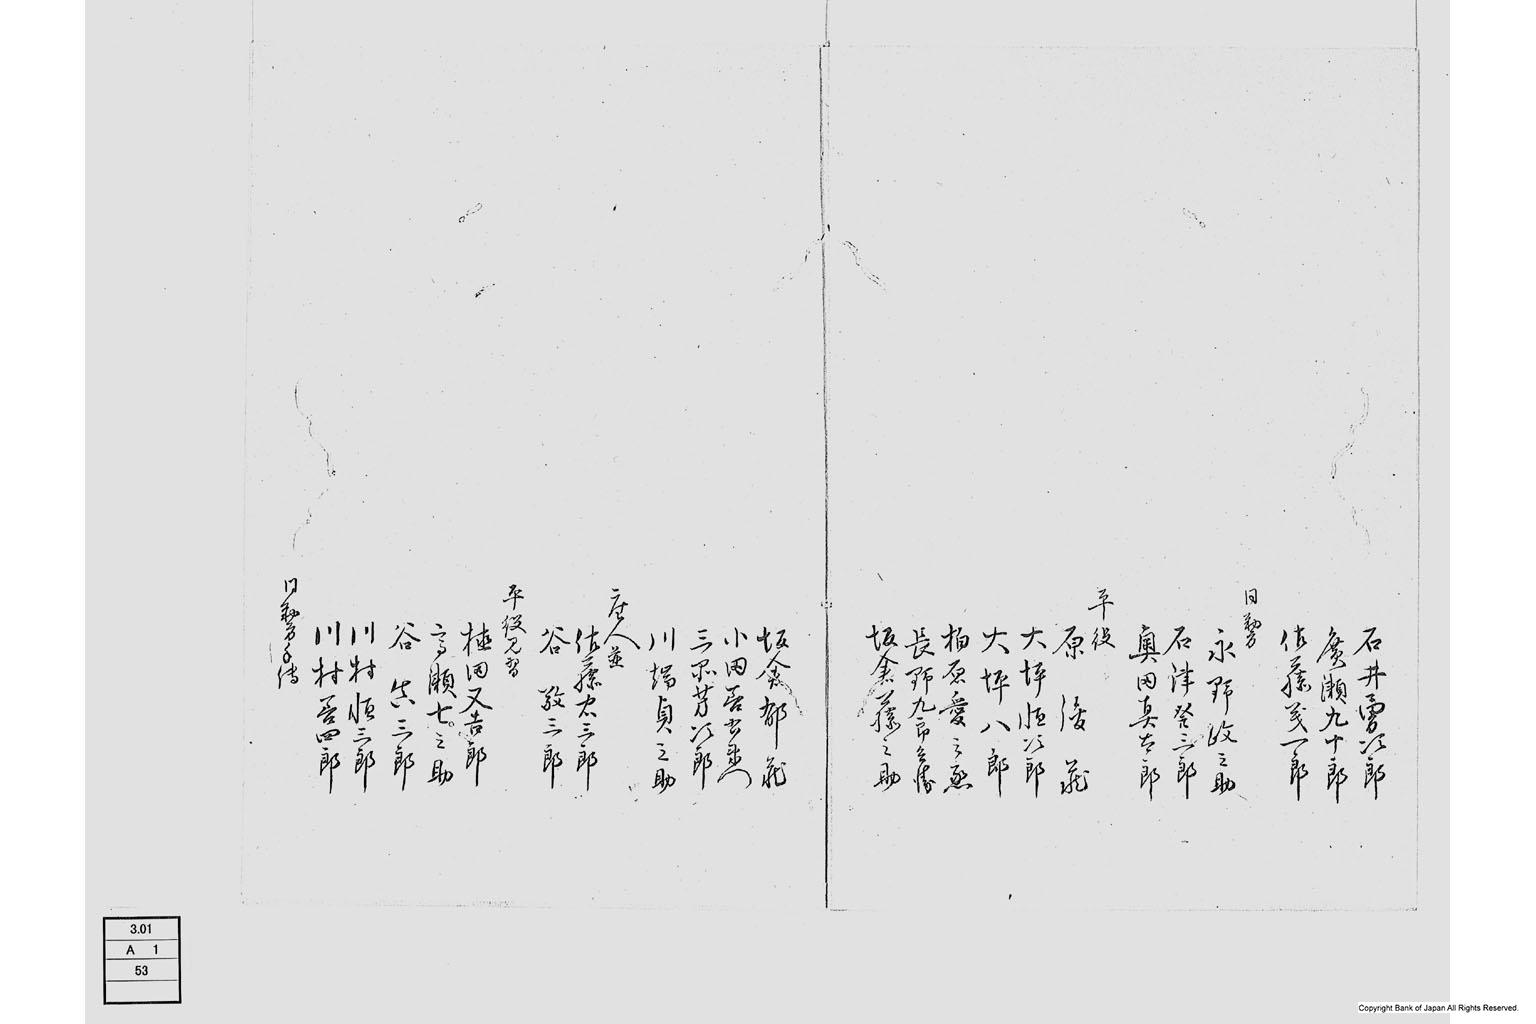 石井勇次郎
廣瀬九十郎
佐藤茂一郎
同勤方
永野政之助
石津登三郎
奥田真太郎
平役
原 陵蔵
大坪恒次郎
大坪八郎
柏原愛之丞
長野九郎兵衛
坂倉藤之助
坂倉郁蔵
小田吾右衛門
三
芳次郎
川端貞之助
座人並
佐藤太三郎
谷 敬三郎
平役見習
植田又吉郎
高瀬七之助
谷 貞三郎
川村恒三郎
川村吾四郎
同勤方手傳
3.01
A 1
53
Copyright Bank of Japan All Rights Reserved.